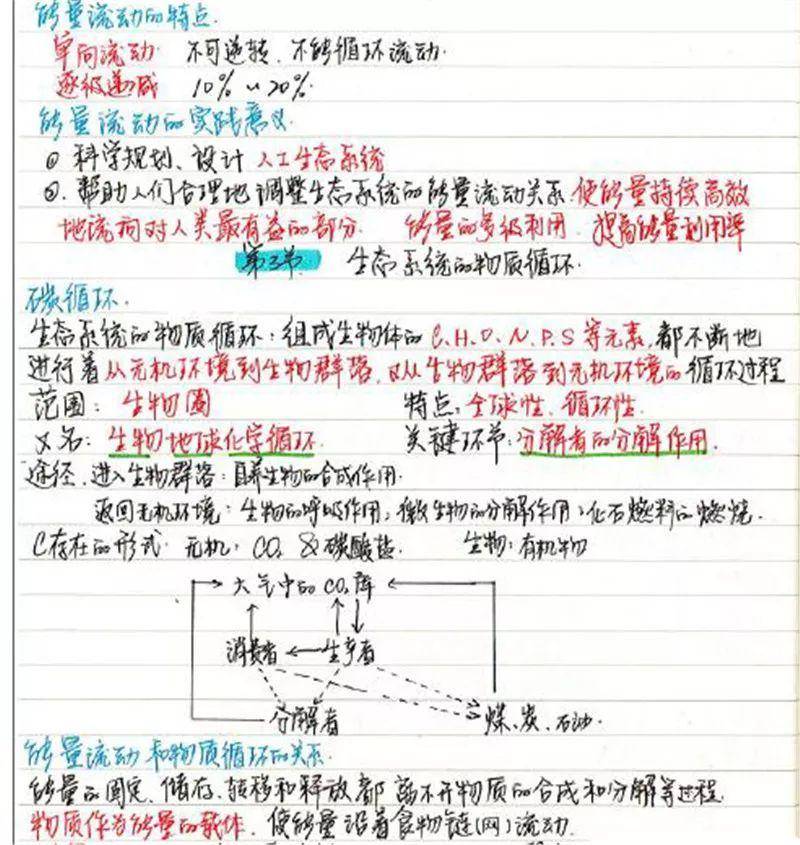 能量流动的特点.
单向流动 不可逆转、不能循环流动.
逐级递减 10%~20%.
能量流动的实践意义.
① 科学规划、设计 人工生态系统
②. 帮助人们合理地调整生态系统的能量流动关系.使能量持续高效
地流向对人类最有益的部分. 能量的多级利用 提高能量利用率
第3节. 生态系统的物质循环.
碳循环.
生态系统的物质循环:组成生物体的 C.H.O.N.P.S等元素,都不断地
进行着从无机环境到生物群落,又从生物群落到无机环境的循环过程
范围: 生物圈 特点:全球性、循环性.
又名:生物地球化学循环. 关键环节:分解者的分解作用.
途径.进入生物群落:自养生物的合成作用.
返回无机环境:生物的呼吸作用,微生物的分解作用,化石燃料的燃烧.
C存在的形式. 无机:CO₂ &碳酸盐. 生物:有机物
大气中的CO₂库
消费者 生产者
分解者 煤、炭、石油.
能量流动和物质循环的关系.
能量的固定、储存、转移和释放都离不开物质的合成和分解等过程.
物质作为能量的载体.使能量沿着食物链(网)流动.